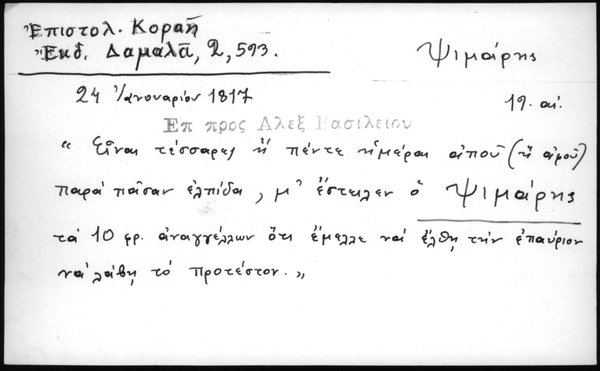 Ἐπιστολ. Κοραῆ
Ἔκδ. Δαμαλᾶ, 2, 593.
Ψιμάρης
24 Ἰανουαρίου 1817
19. αἰ.
Επ προς Αλεξ Βασιλειου
“ Εἶναι τέσσαρες ἢ πέντε ἡμέραι ἀποῦ (ἢ ἀφοῦ)
παρὰ πᾶσαν ἐλπίδα, μ' ἔστειλεν ὁ Ψιμάρης
τὰ 10 φρ. ἀναγγέλλων ὅτι ἔμελλε νὰ ἔλθῃ τὴν ἐπαύριον
νὰ λάβῃ τὸ προτέστον. ”